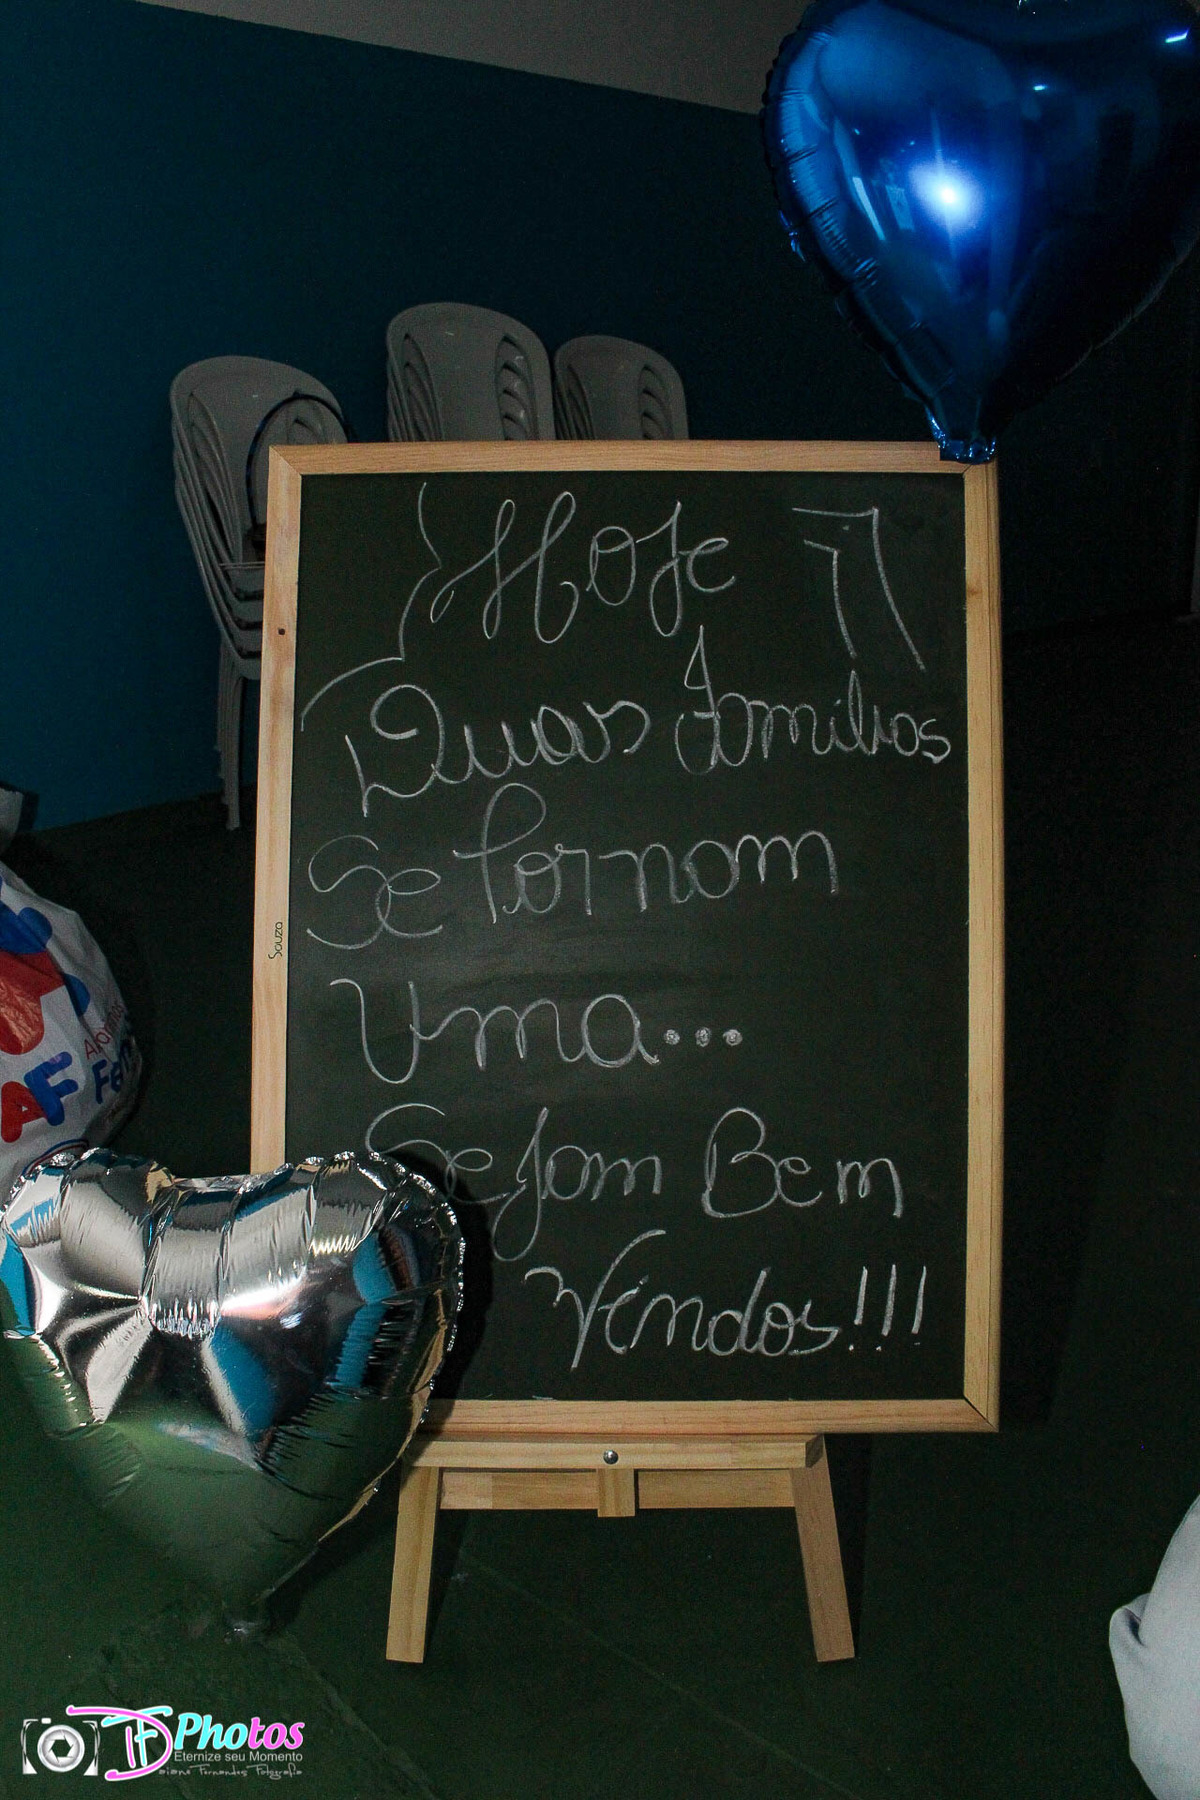 Hoje
Duas famílias
Se tornam
Uma...
Sejam Bem
Vindos!!!
Souza
AF
DF Photos
Eternize seu Momento
Daiane Fernandes Fotografia